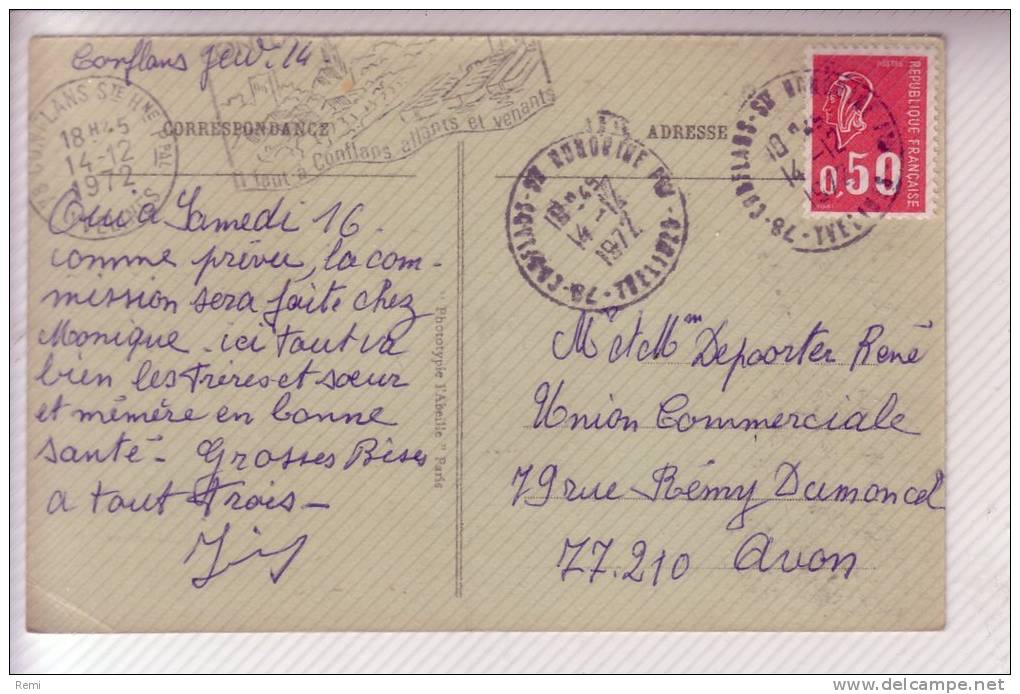 Conflans Jeudi 14
78 CONFLANS STE HNE PAL
18 H 45
14-12
1972
YVELINES
Il faut à Conflans allants et venants
CORRESPONDANCE
Oui à Samedi 16
comme prévu, la com-
mission sera faite chez
Monique - ici tout va
bien les frères et sœur
et mémère en bonne
santé - Grosses Bises
à tout trois -
" Phototypie l'Abeille " Paris
ADRESSE
78-CONFLANS-STE HONORINE PAL-YVELINES
18 H 45
14
1972
POSTES
REPUBLIQUE FRANÇAISE
0,50
78-CONFLANS-STE
14-12
M et Mme Depoorter René
Union Commerciale
79 rue Rémy Dumoncel
77.210 Avon
Remi
www.delcampe.net